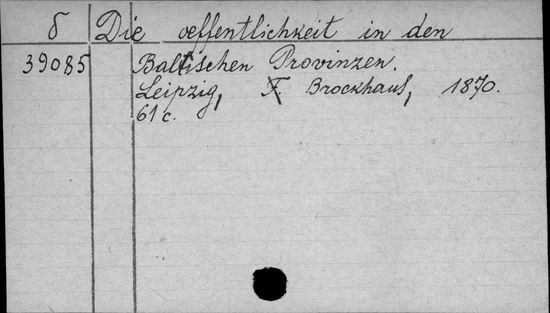 δ Die oeffentlichkeit in den
39085 Baltischen Provinzen.
Leipzig, F. Brockhaus, 1870.
61 c.